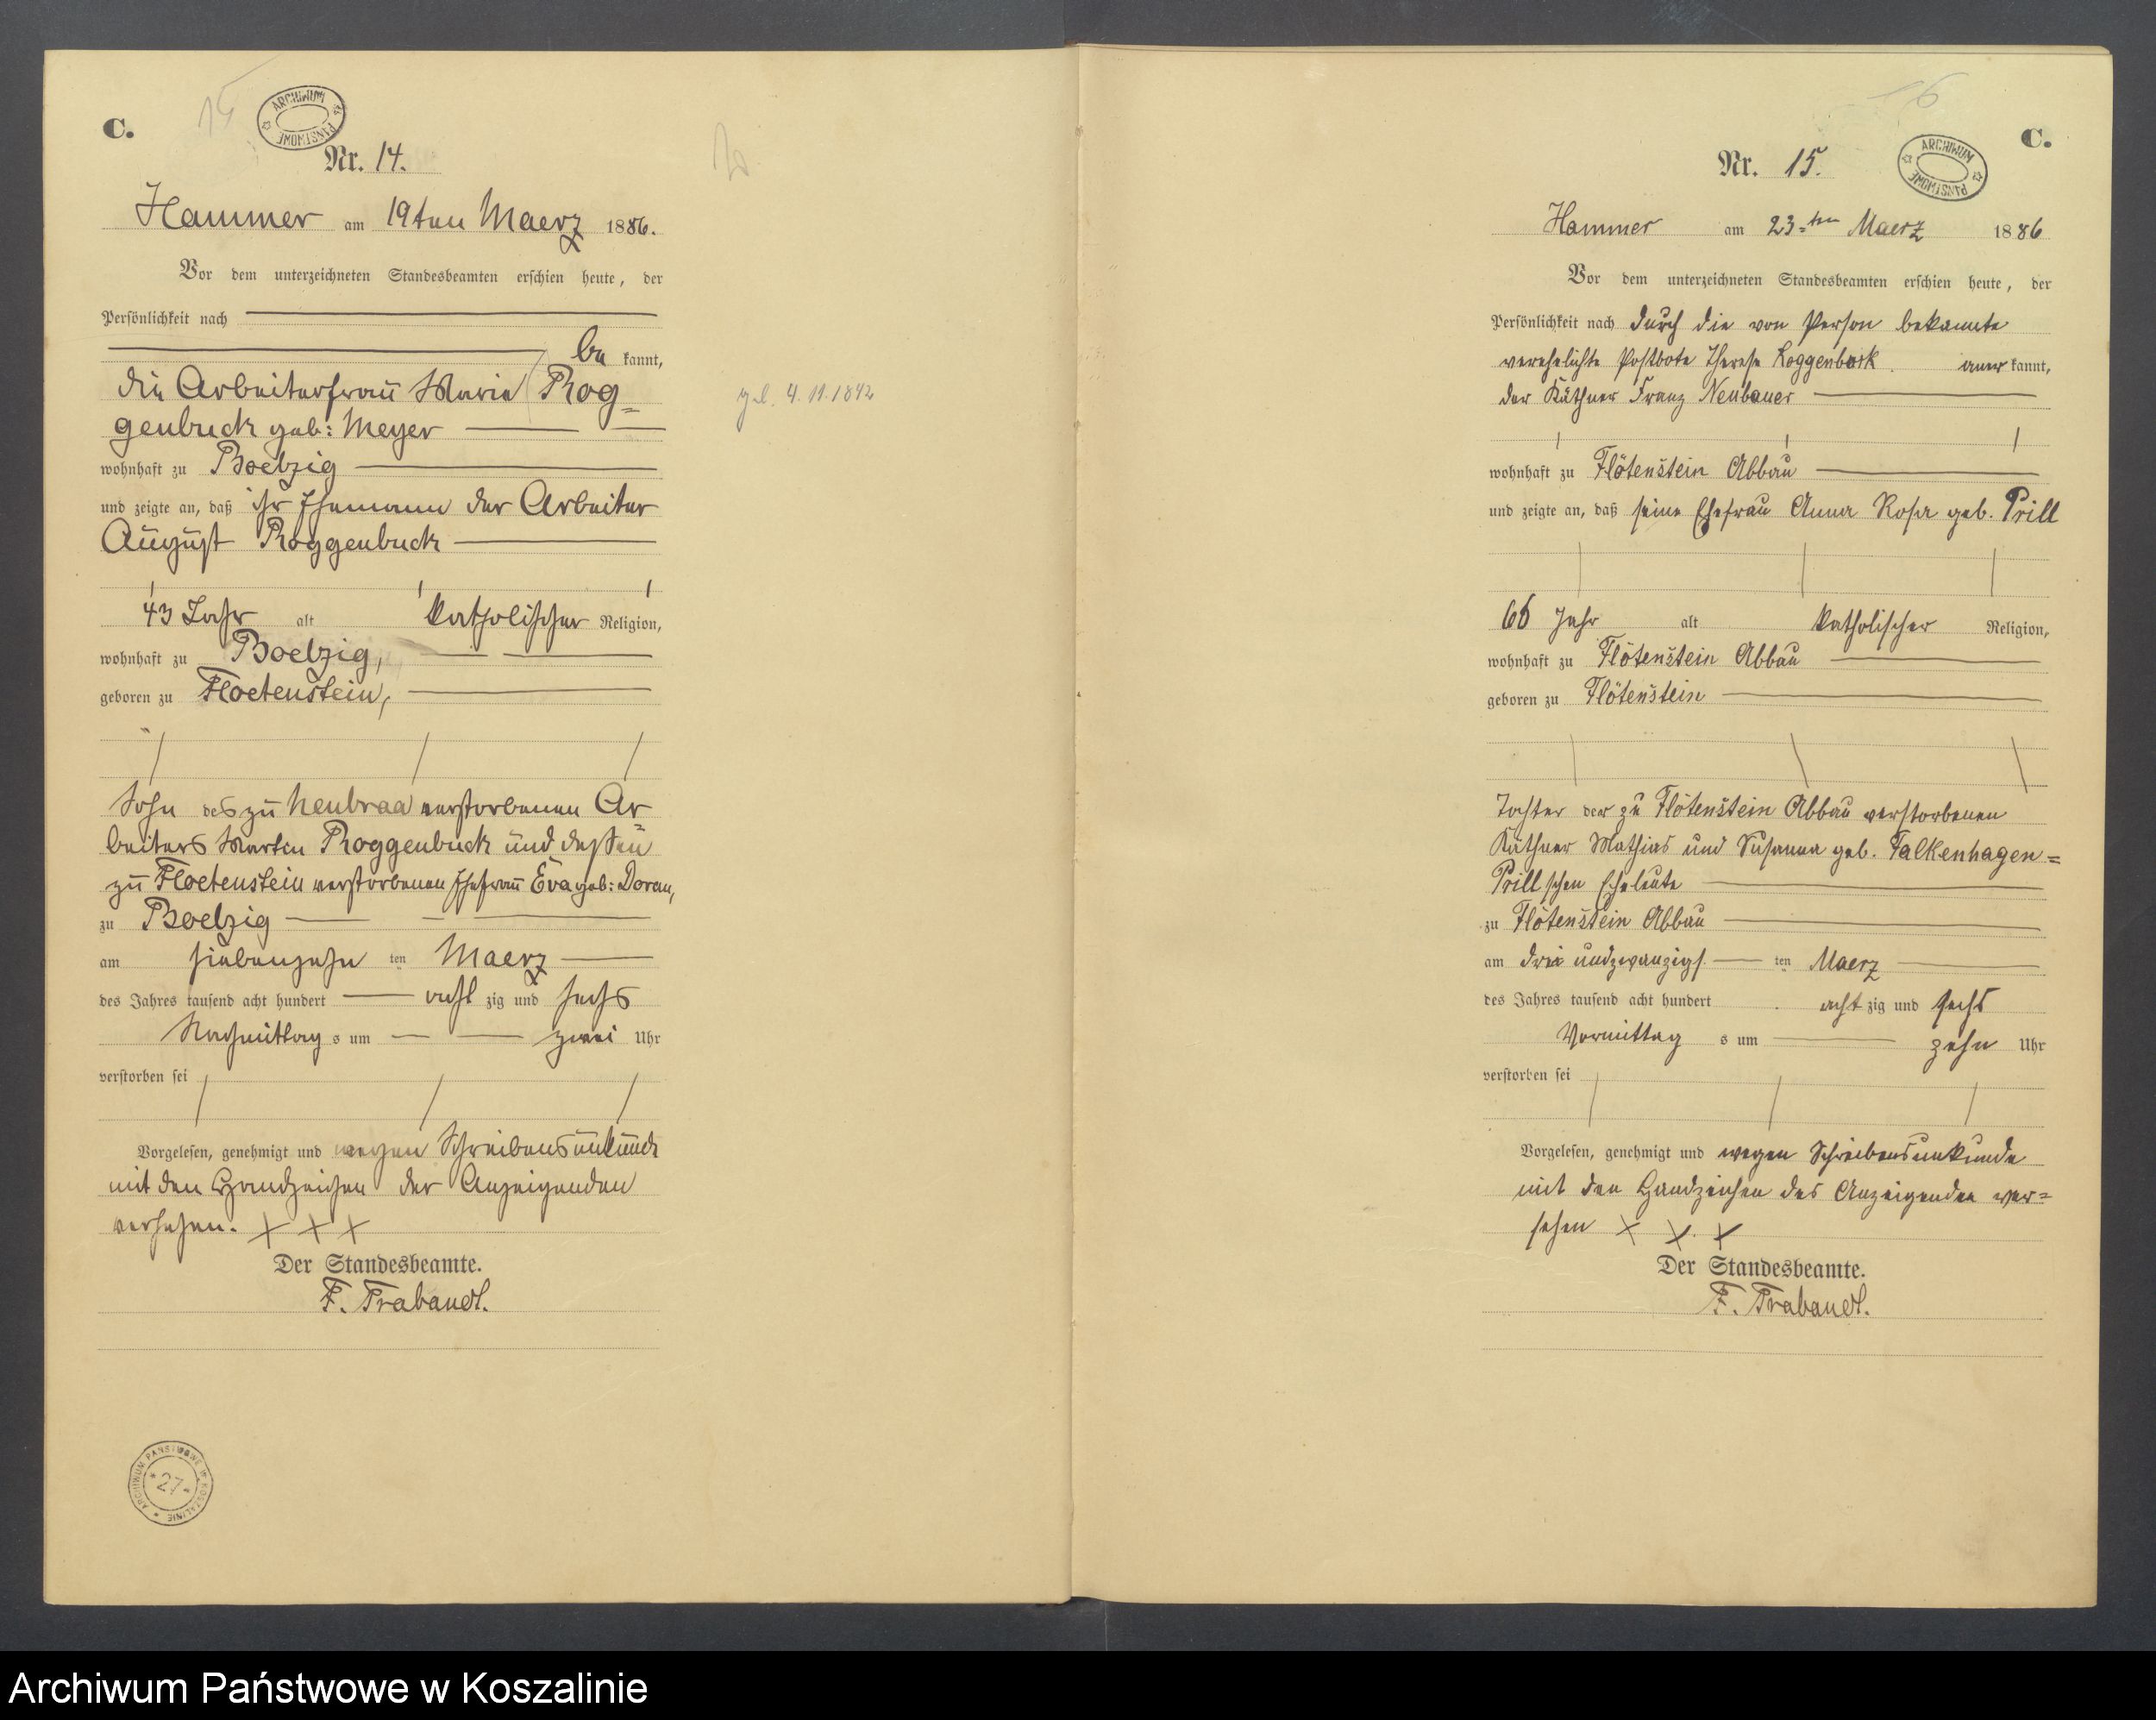 C.
15
ARCHIWUM PAŃSTWOWE
Nr. 14.
Hammer am 19ten Maerz 1886.
Vor dem unterzeichneten Standesbeamten erschien heute, der
Persönlichkeit nach
be kannt,
die Arbeiterfrau Marie Rog=
genbuck geb: Meyer
wohnhaft zu Boelzig
und zeigte an, daß ihr Ehemann der Arbeiter
August Roggenbuck
43 Jahr alt katholischer Religion,
wohnhaft zu Boelzig,
geboren zu Floetenstein,
Sohn des zu Neubraa verstorbenen Ar=
beiters Martin Roggenbuck und dessen
zu Floetenstein verstorbenen Ehefrau Eva geb: Doran,
zu Boelzig
am siebenzehn ten Maerz
des Jahres tausend acht hundert acht zig und sechs
Nachmittag s um zwei Uhr
verstorben sei
Vorgelesen, genehmigt und wegen Schreibensunkunde
mit den Handzeichen der Anzeigenden
versehen. X X X
Der Standesbeamte.
F. Trabandt.
ARCHIWUM PAŃSTWOWE W KOSZALINIE
27
4.11.1842
C.
ARCHIWUM PAŃSTWOWE
Nr. 15.
Hammer am 23=ten Maerz 1886
Vor dem unterzeichneten Standesbeamten erschien heute, der
Persönlichkeit nach durch die von Person bekannte
verehelichte Postbote Therese Roggenbuck aner kannt,
der Käthner Franz Neubauer
wohnhaft zu Flötenstein Abbau
und zeigte an, daß seine Ehefrau Anna Rosa geb. Prill
Jahr alt katholischer Religion,
wohnhaft zu Flötenstein Abbau
geboren zu Flötenstein
Tochter der zu Flötenstein Abbau verstorbenen
Käthner Mathias und Susanna geb. Falkenhagen=
Prillschen Eheleute
zu Flötenstein Abbau
am drei undzwanzigs ten Maerz
des Jahres tausend acht hundert acht zig und sechs
Vormittag s um zehn Uhr
verstorben sei
Vorgelesen, genehmigt und wegen Schreibensunkunde
mit den Handzeichen des Anzeigenden ver=
sehen X X. X
Der Standesbeamte.
F. Trabandt.
Archiwum Państwowe w Koszalinie